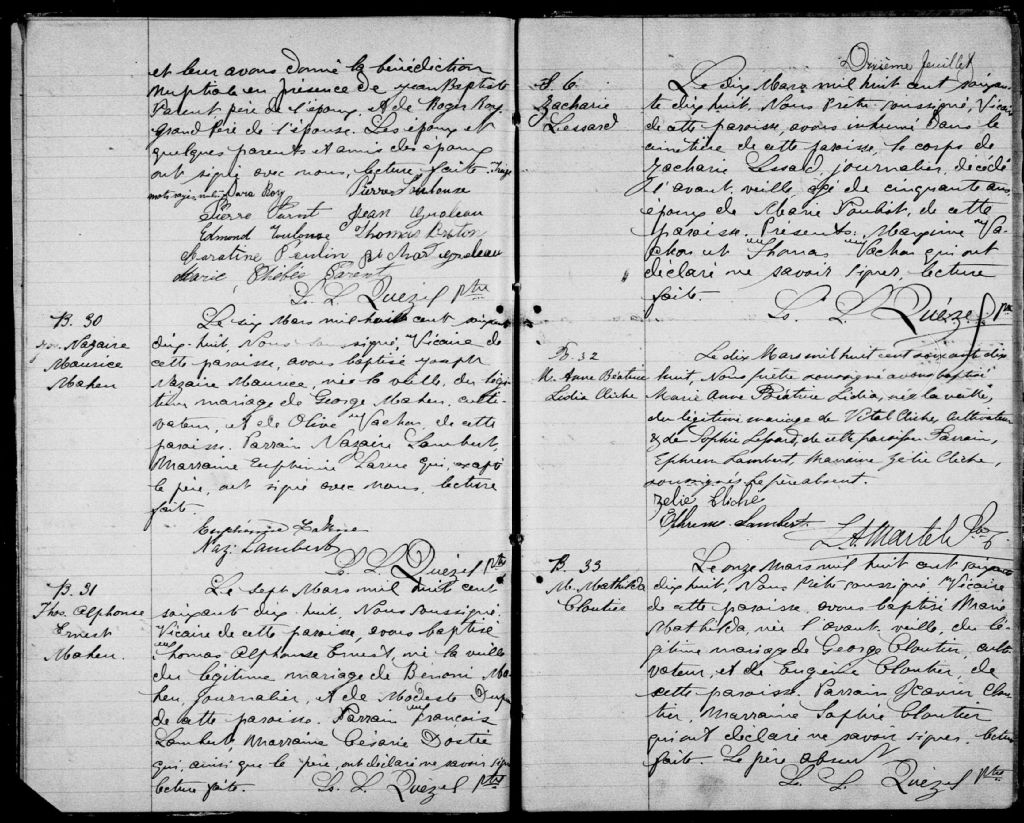 et leur avons donné la bénédiction
nuptiale en présence de Jean Baptiste
Parent père de l'époux, et de Roger Roy
grand père de l'épouse. Les époux et
quelques parents et amis des époux
ont signé avec nous, lecture faite.
mots rayés nuls Roy Pierre Toulouse
Pierre Parent Jean Grosleau
Edmond Toulouse Thomas Breton
Poulin
Marie Parent
L. L. Quézel Ptre
B. 30
Nazaire
Maurice
Maheu
Le six Mars mil huit cent soixante
dix-huit, Nous soussigné, Vicaire de
cette paroisse, avons baptisé Joseph
Nazaire Maurice, né la veille, du légi
time mariage de George Maheu, culti-
vateur, et de Olive Vachon de cette
paroisse. Parrain Nazaire Lambert,
Marraine Euphémie qui, excepté
le père, ont signé avec nous, lecture
faite.
Euphémie
Naz. Lambert
L. L. Quézel Ptre
B. 31
Ths. Alphonse
Ernest
Maheu.
Le sept Mars mil huit cent
soixante dix huit, Nous soussigné,
Vicaire de cette paroisse, avons baptisé
Thomas Alphonse Ernest, né la veille
du légitime mariage de Bénoni Ma-
heu, journalier, et de Modeste
de cette paroisse. Parrain François
Lambert, Marraine Césarie Dostie
qui, ainsi que le père, ont déclaré ne savoir signer
lecture faite. L. L. Quézel Ptre
feuillet
S. 6
Zacharie
Lessard
Le dix Mars mil huit cent soixan-
te dix huit, Nous Prêtre soussigné, Vicaire
de cette paroisse, avons inhumé dans le
cimetière de cette paroisse, le corps de
Zacharie Lessard, journalier, décédé
l'avant veille âgé de cinquante ans
époux de Marie de cette
paroisse. Présents, Va-
chon et Thomas Vachon qui ont
déclaré ne savoir signer, lecture
faite.
L. L. Quézel Ptre
B. 32
M. Anne Béatrice
Lidia Cliche
Le dix Mars mil huit cent soixante dix
huit, Nous prêtre soussigné avons baptisé
Marie Anne Béatrice Lidia, née la veille,
du légitime mariage de Vital Cliche, cultivateur
& de Sophie Lessard, de cette paroisse. Parrain,
Ephrem Lambert, Marraine Zélie Cliche,
soussignés. Le père absent.
Zelie Cliche
Ephrem Lambert
L. A. Martel Ptre
B. 33
M. Mathilda
Cloutier
Le onze Mars mil huit cent soixante
dix huit, Nous Prêtre soussigné Vicaire
de cette paroisse, avons baptisé Marie
Mathilda, née l'avant veille, du lé-
gitime mariage de George Cloutier, culti-
vateur, et de Eugénie Cloutier, de
cette paroisse. Parrain Xavier Clou-
tier, Marraine Sophie Cloutier
qui ont déclaré ne savoir signer, lecture
faite. Le père absent
L. L. Quézel Ptre